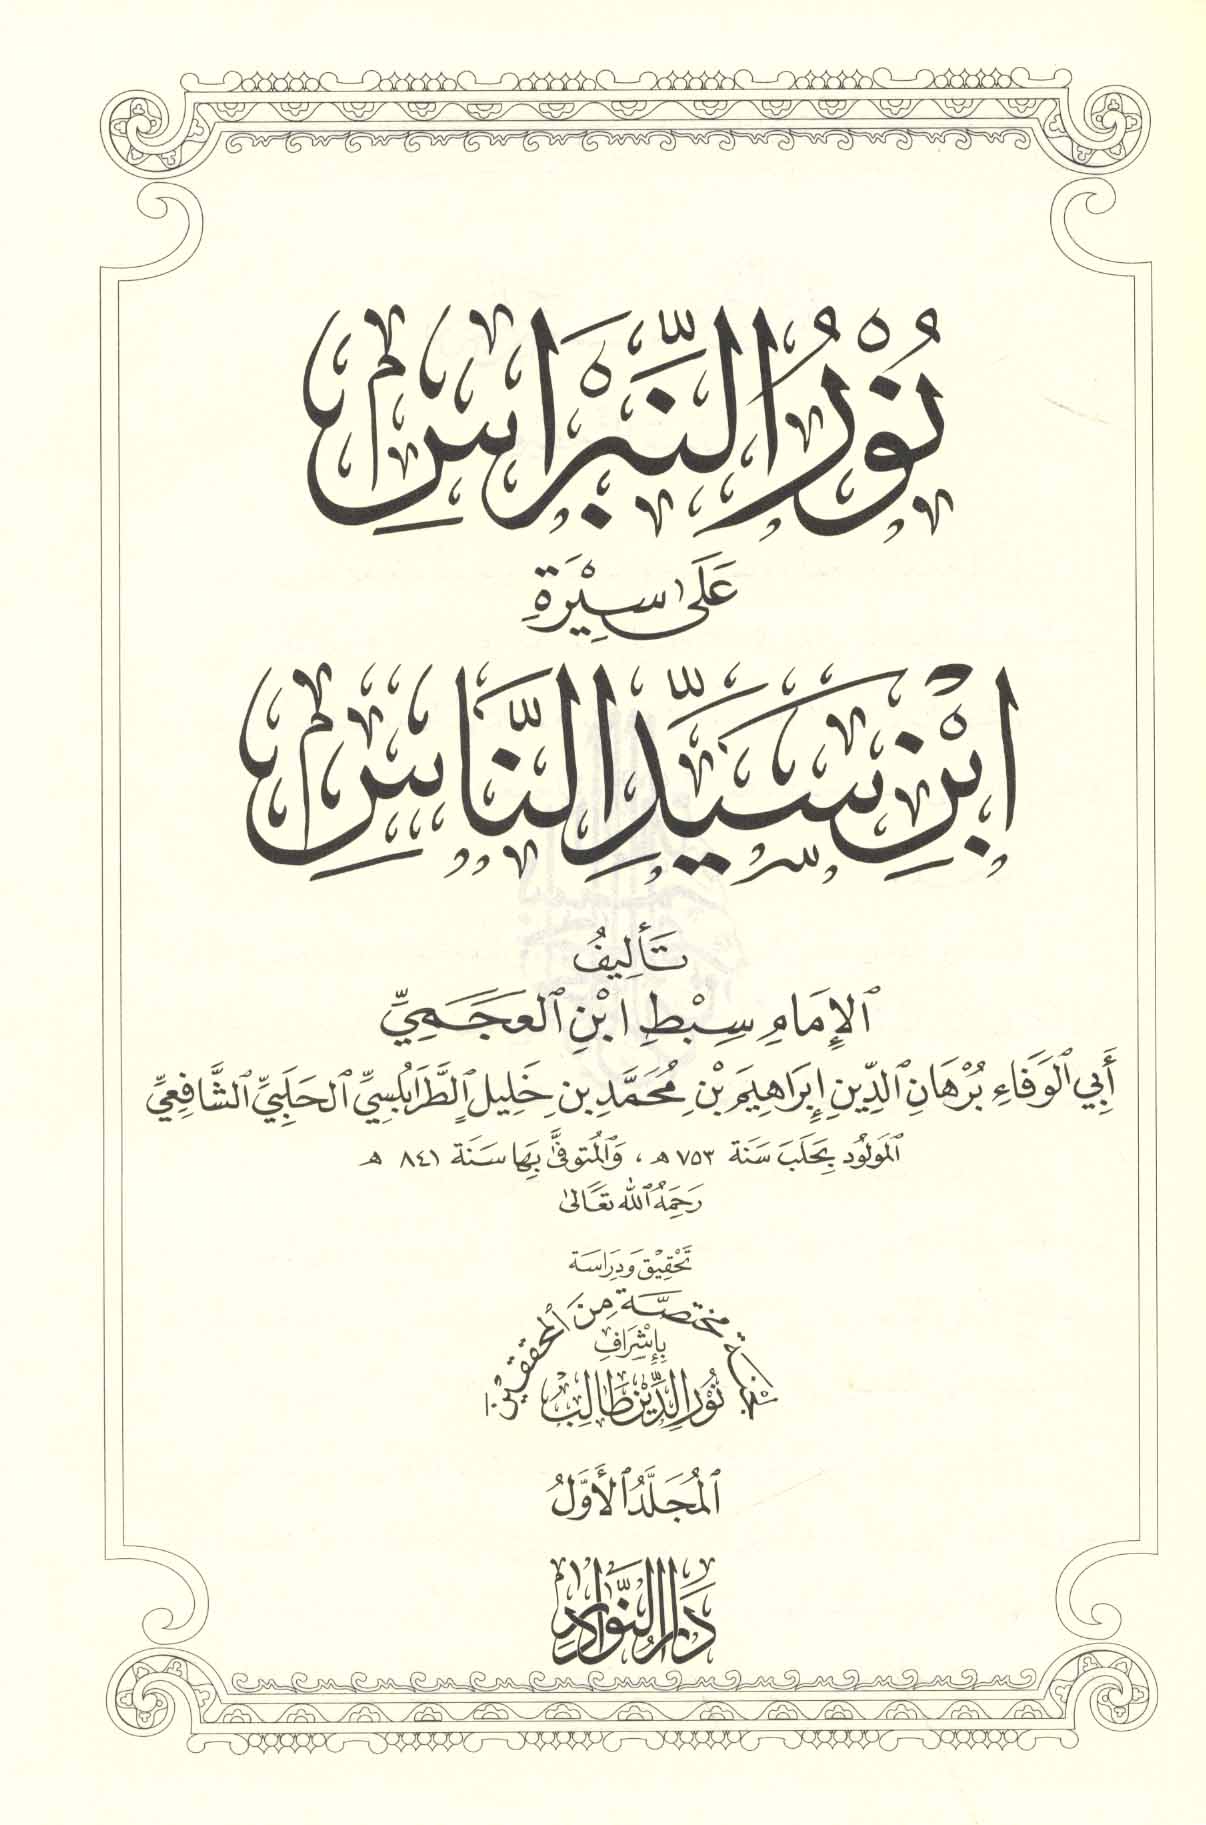 نُوْرُ النِّبْرَاسِ
عَلَى سِيْرَةِ
ابْنِ سَيِّدِ النَّاسِ
تَأْلِيفُ
الإِمَامِ سِبْطِ ابْنِ العَجَمِيِّ
أَبِي الوَفَاءِ بُرْهَانِ الدِّينِ إِبْرَاهِيمَ بْنِ مُحَمَّدِ بنِ خَلِيلٍ الطَّرَابُلسِيِّ الحَلَبِيِّ الشَّافِعِيِّ
المَوْلُودِ بِحَلَبَ سَنَة ٧٥٣ هـ ، وَالمُتَوفَّى بِهَا سَنَة ٨٤١ هـ
رَحِمَهُ اللَّه تعَالَى
تَحْقِيْق وَدِرَاسَة
لجْنَة مُختصَّة مِنَ المُحققيْن
بِإِشْرَافِ
نُوْرُ الدِّيْن طَالِبْ
المُجَلَّدُ الأَوَّلُ
دَارُ النَّوَادِرِ